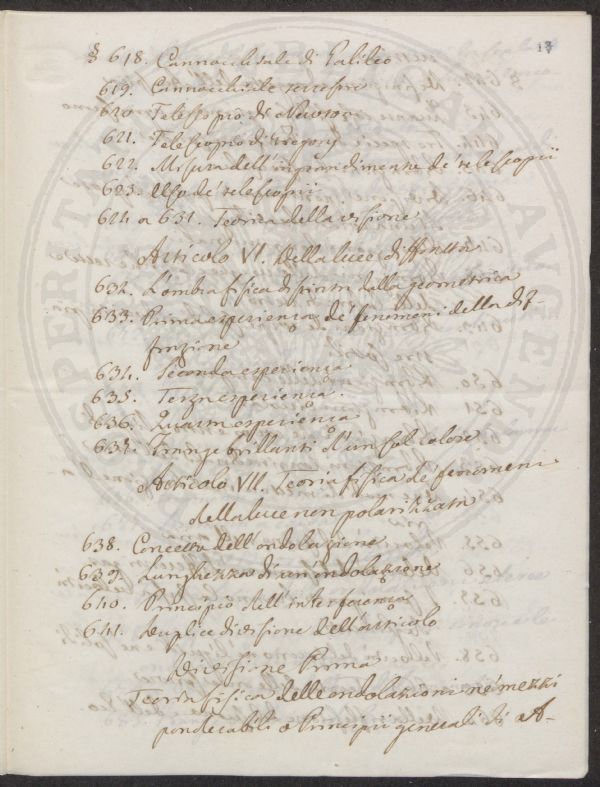 17
§ 618. Cannocchiale di Galileo
619. Cannocchiale terrestre
620. Telescopio di Newton
621. Telescopio di Gregory
622. Misura dell'ingrandimento de' telescopii
623. Uso de' telescopii
624 a 631. Teorica della visione
Articolo VI. Della luce diffratta
632. L'ombra fisica distinta dalla geometrica
633. Prima esperienza de' fenomeni della dif-
frazione
634. Seconda esperienza
635. Terza esperienza.
636. Quarta esperienza
637. Frange brillanti d'un sol colore
Articolo VII. Teoria fisica de' fenomeni
della luce non polarizzata
638. Concetto dell'ondolazione
639. Lunghezza di un'ondolazione
640. Principio dell'interferenza
641. Duplice divisione dell'articolo
Divisione Prima
Teoria fisica delle ondolazioni ne' mezzi
ponderabili o Principii generali di A-
PROSPERITATI PUBLICAE AUGENDAE